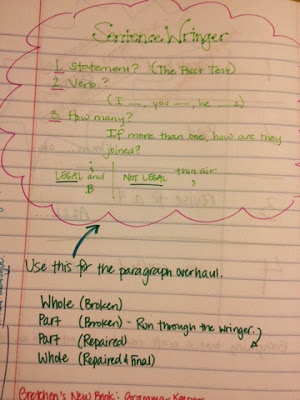 Sentence Wringer
1. Statement? (The Best Test)
2. Verb?
(I __, you __, he __s)
3. How many?
If more than one, how are they
joined?
; thin air
LEGAL and | NOT LEGAL ,
B
Use this for the paragraph overhaul.
Whole (Broken)
Part (Broken) - Run through the wringer.
Part (Repaired)
Whole (Repaired & Final)
Gretchen's New Book: Grammar Keepers